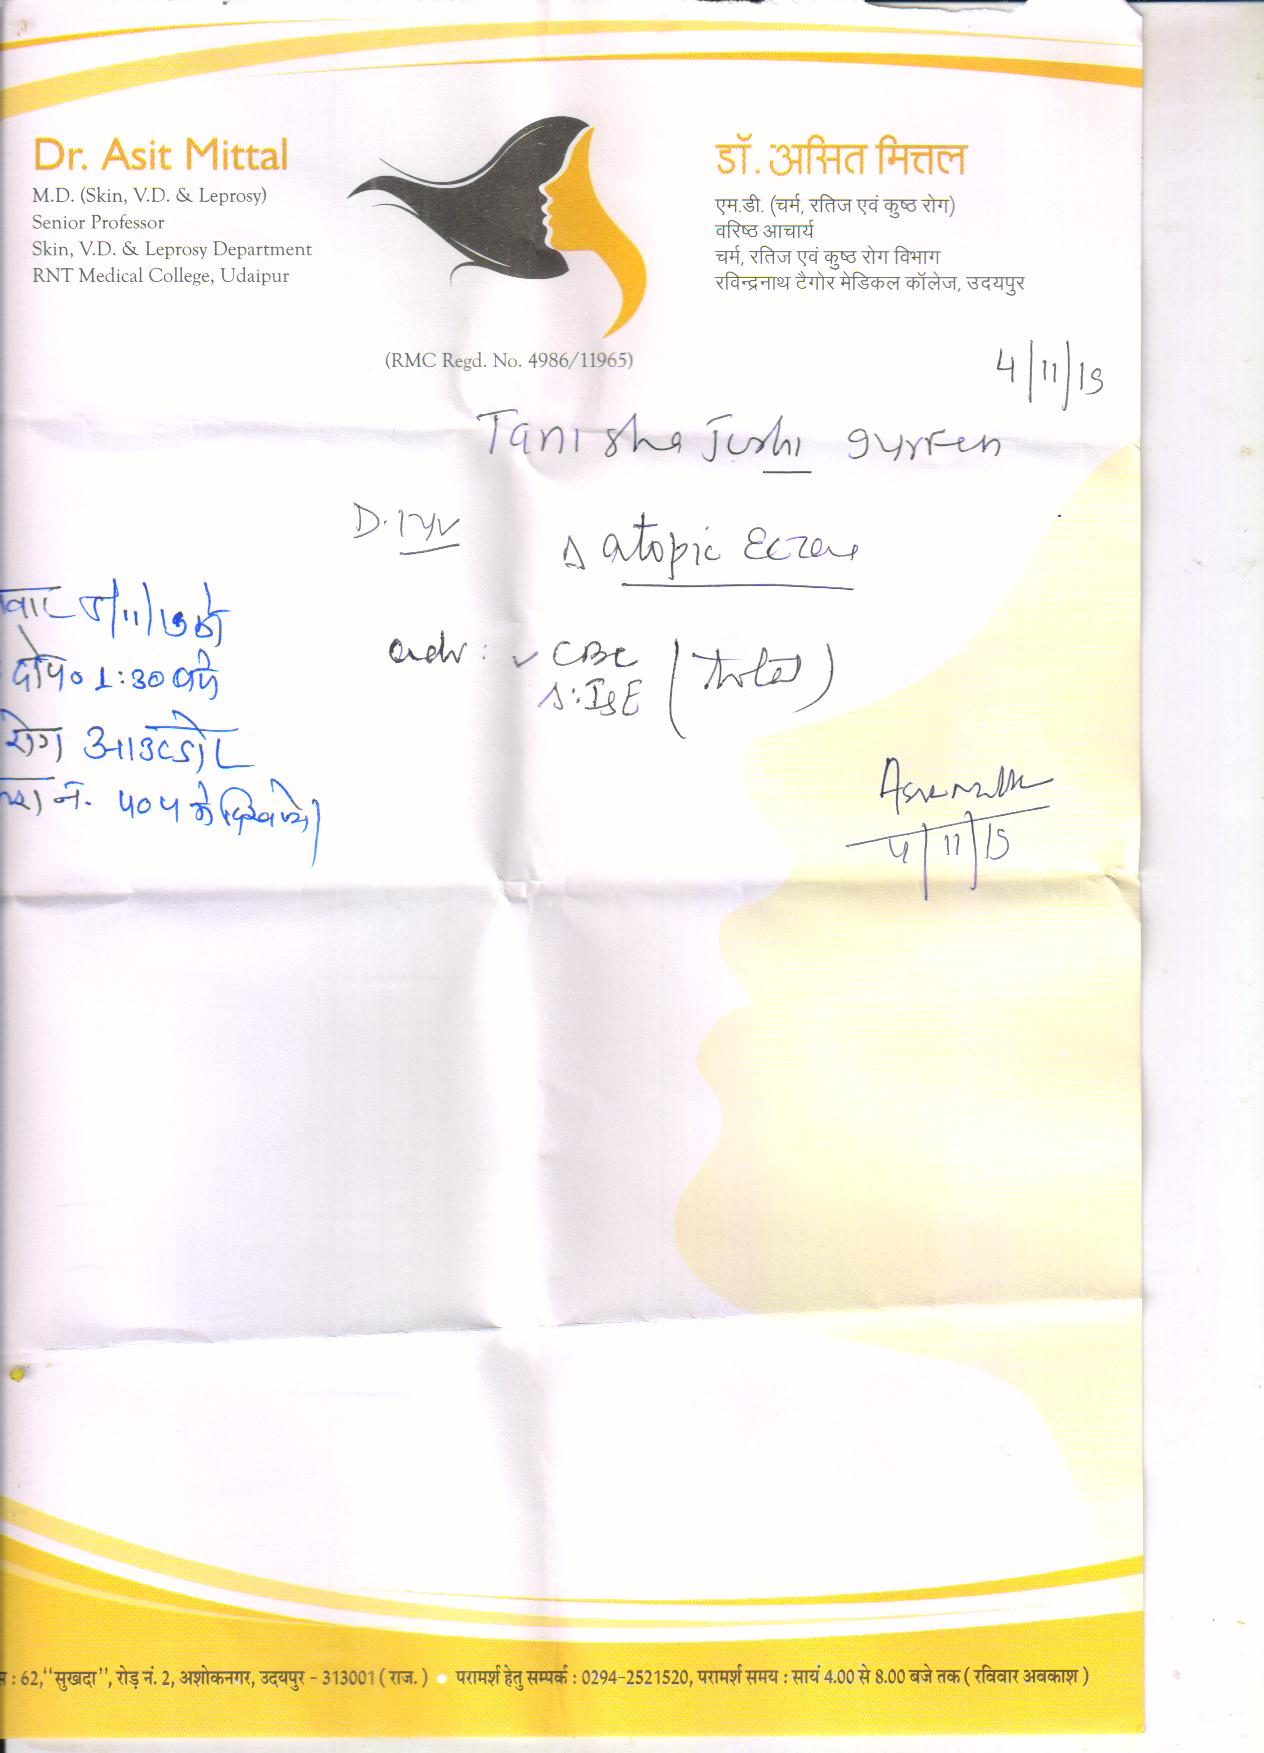 Dr. Asit Mittal
M.D. (Skin, V.D. & Leprosy)
Senior Professor
Skin, V.D. & Leprosy Department
RNT Medical College, Udaipur
डॉ. असित मित्तल
एम.डी. (चर्म, रतिज एवं कुष्ठ रोग)
वरिष्ठ आचार्य
चर्म, रतिज एवं कुष्ठ रोग विभाग
रविन्द्रनाथ टैगोर मेडिकल कॉलेज, उदयपुर
(RMC Regd. No. 4986/11965)
4/11/19
Tanisha Joshi
atopic Eczema
adv: ✓ CBC
S. IgE (Total)
दोप० 1:30 बजे
रोग आउटडोर
नं. 404 में दिखाये।
4/11/19
: 62, ‘‘सुखदा’’, रोड़ नं. 2, अशोकनगर, उदयपुर - 313001 ( राज. ) ● परामर्श हेतु सम्पर्क : 0294-2521520, परामर्श समय : सायं 4.00 से 8.00 बजे तक ( रविवार अवकाश )